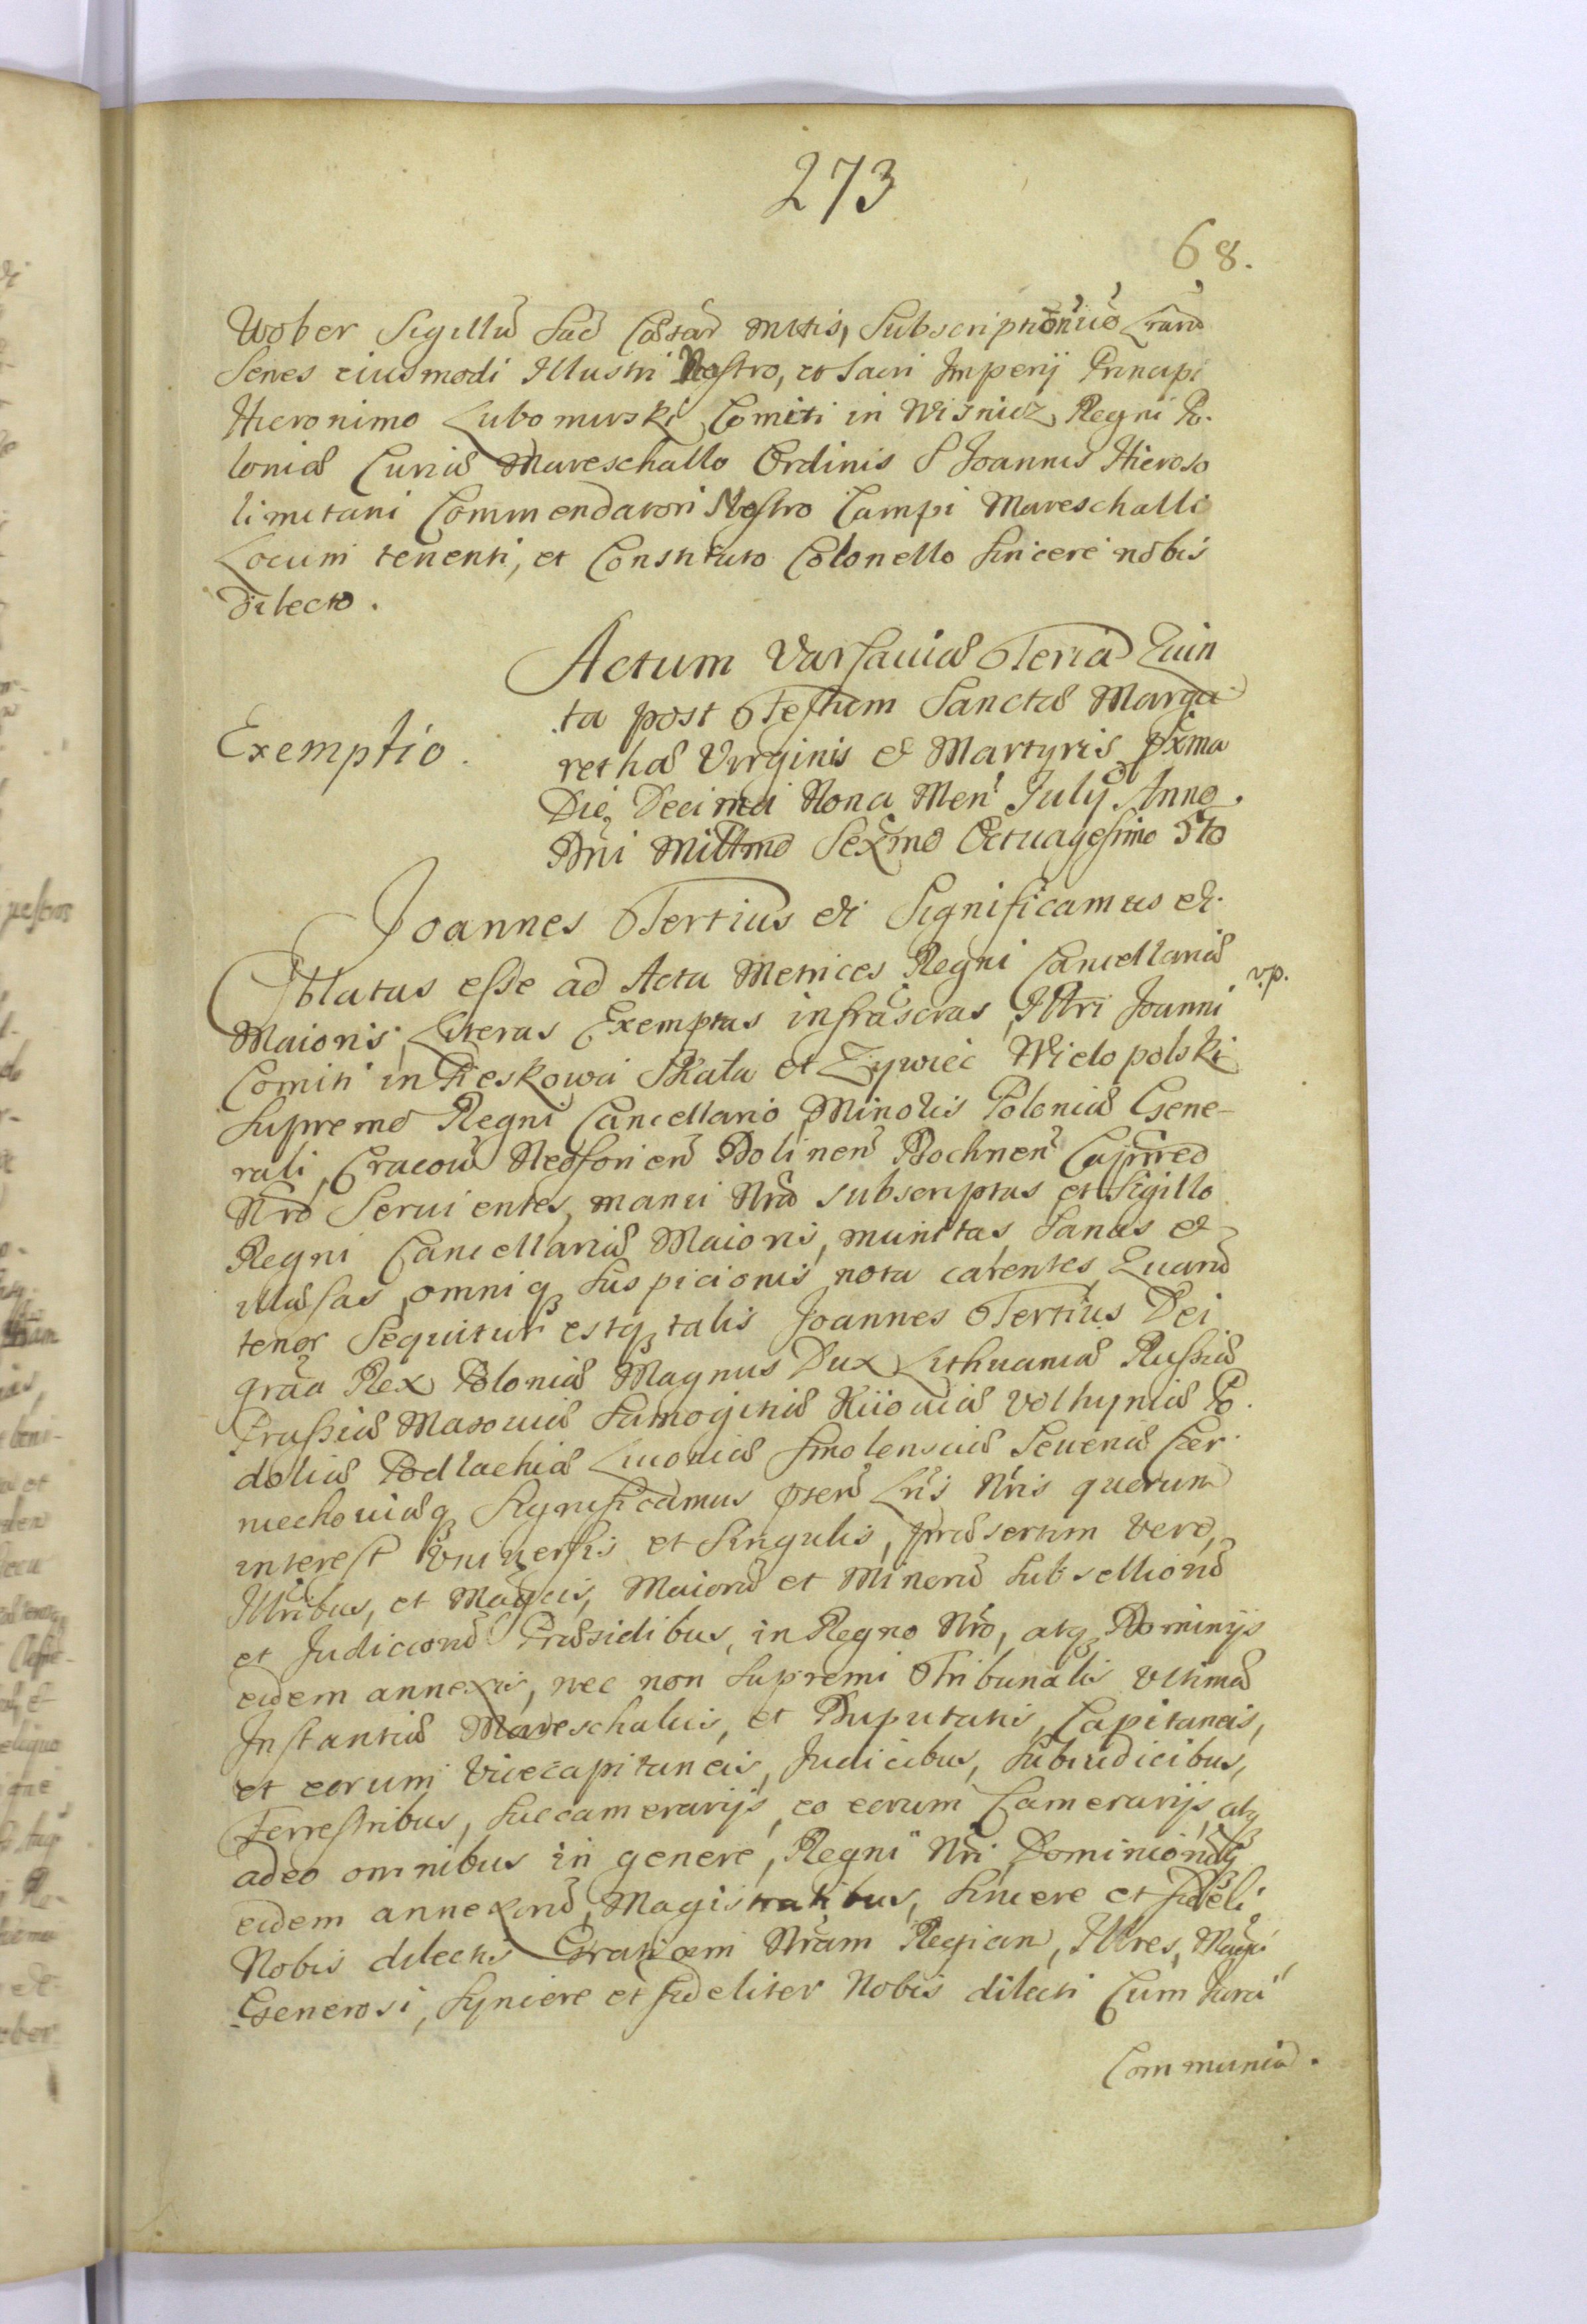 273
68.
Wober Sigillũ Sac̃ Cæsar̃ Mttis, Subscriptionũ Lrarũ
Series eiusmodi Illustri Nostro, et Sacri Imperij Principi
Hieronimo Lubomirski Comiti in Wisnicz, Regni Po-
loniæ Curiæ Mareschallo Ordinis S Joannis Hieroso
limitani Commendatori Nostro Campi Mareschalli
Locum tenenti, et Constituto Colonello Sincere nobis
dilecto.
Actum Varsauiæ Feria Quin
ta post Festum Sanctæ Marga
rethæ Virginis & Martyris pxma
Die Decima Nona Men̾ July Anno
Dñi Millmo Sexmo Octuagesimo 5to
Exemptio.
Joannes Tertius &c Significamus &c.
Oblatas esse ad Acta Metrices Regni Cancellariæ
v.p.
Maioris, Literas Exemptas infrascras, Illri Joanni
Comiti in Pieskowa Skała et Zywiec Wielopolski
Supremo Regni Cancellario, Minoris Poloniæ Gene-
rali, Cracoui Neoforien̾ Bolinen̾ Bochnen̾ Capneo
Nro Seruientes, manu Nra subscriptas, et Sigillo
Regni Cancellariæ Maioris, munitas, Sanas et
illæsas, omniq, Suspicionis nota carentes, Quarũ
tenor Sequitur estq, talis Joannes Tertius Dei
grãa Rex Poloniæ Magnus Dux Lithuaniæ Russiæ
Prussiæ Masouiæ Samogitiæ Kiiouiæ Volhyniæ Po-
doliæ Podlachiæ Liuoniæ Smolensciæ Seueriæ Czer-
niechouiæq, Significamus pñtib Lris Nris quorum
interest Vniuersis et Singulis, præsertim vero,
Illribus, et Magcis, Maiorũ et Minorũ Subselliorũ
et Judiciorũ Præsidibus, in Regno Nro, atq, Dominijs
eidem annexis, nec non Supremi Tribunalis Vltimæ
Instantiæ Mareschalcis, et Duputatis, Capitaneis,
et eorum Vicecapitaneis, Judicibus, Subiudicibus,
Terrestribus, Succamerarijs, et eorum Camerarijs, atq,
adeo omnibus in genere, Regni Nri Dominiorũq
eidem annexorũ, Magistratibus, Sincere et fideli,
Nobis dilectis Gratiam Nrãm Regiam, Illres, Magci
Generosi, Syncere et fideliter Nobis dilecti Cum Iura
Communia.